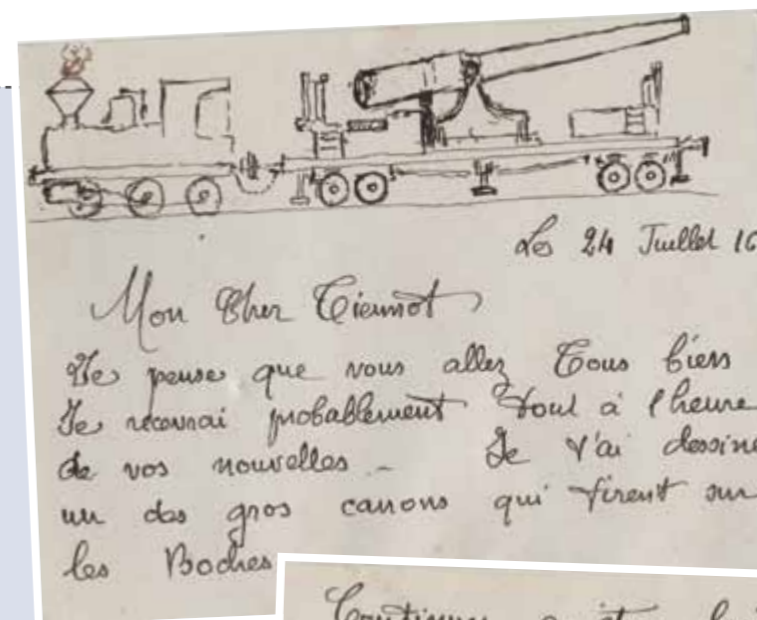 Le 24 Juillet 16
Mon Cher Tiennot
Je pense que vous allez Tous biens
Je recevrai probablement tout à l'heure
de vos nouvelles - Je t'ai dessiné
un des gros canons qui tirent sur
les Boches
Continue